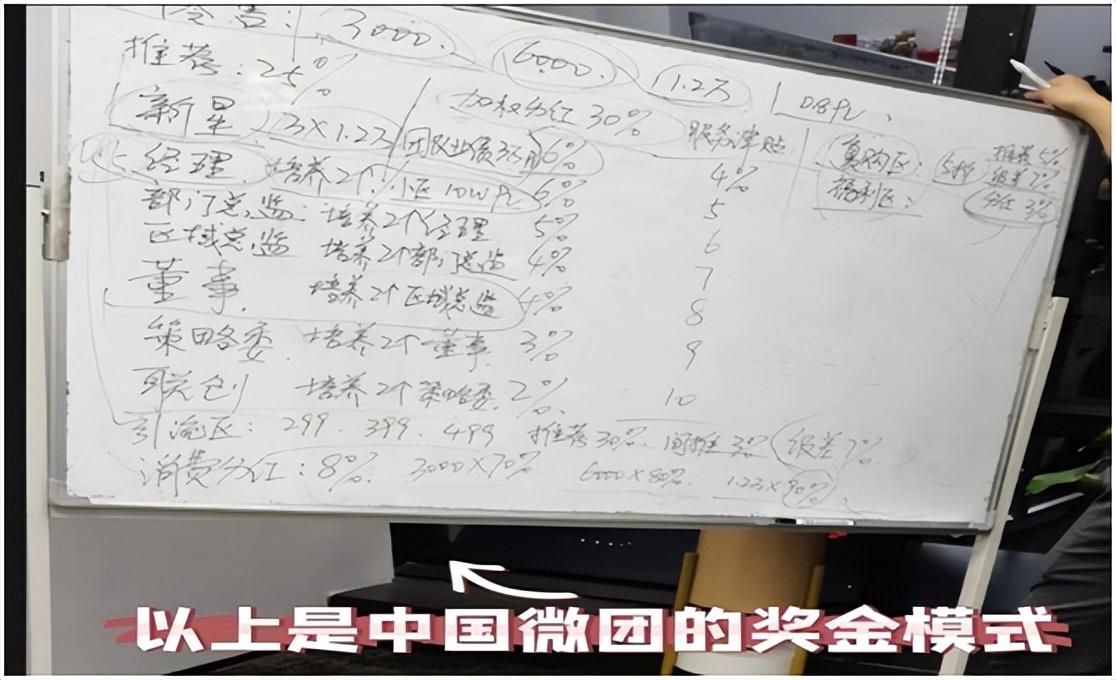 3000. 6000. 1.2万
推荐:25%
新星 3×1.2万 团队业绩 6% 加权分红30% 服务津贴
经理 培养2个 小区10W PV 6% 4%
部门总监:培养2个经理 5% 5
区域总监 培养2个部门总监 4% 6
董事. 培养2个区域总监 4% 7
8
策略委. 培养2个董事 3% 9
联创 培养2个策略委. 2% 10
引流区: 299. 399. 499 推荐30%. 间推3% 级差7%
消费分红:8% 3000×70% 6000×80% 1.2万×90%
复购区: 5折 推荐5% 级差7% 分红3%
福利区:
以上是中国微团的奖金模式